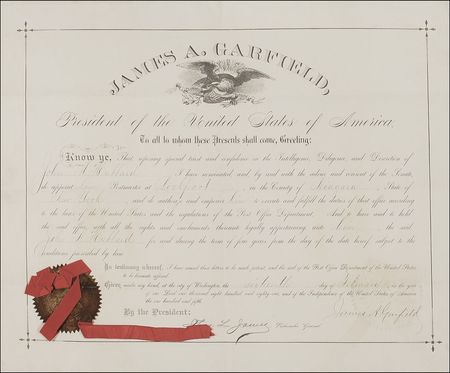 JAMES A. GARFIELD,
President of the United States of America,
To all to whom these Presents shall come, Greeting:
Know ye, That reposing special trust and confidence in the Intelligence, Diligence, and Discretion of
John Hubbard I have nominated, and by and with the advice and consent of the Senate,
do appoint him Postmaster at Lockport in the County of Niagara State of
New York and do authorize and empower him to execute and fulfil the duties of that office according
to the laws of the United States and the regulations of the Post Office Department. And to have and to hold
the said office, with all the rights and emoluments thereunto legally appertaining unto him the said
John Hubbard for and during the term of four years from the day of the date hereof, subject to the
Conditions prescribed by law.
In testimony whereof, I have caused these letters to be made patent, and the seal of the Post Office Department of the United States
to be hereunto affixed.
Given under my hand, at the city of Washington, the day of in the year
of our Lord one thousand eight hundred and eighty-one, and of the Independence of the United States of America
the one hundred and fifth.
By the President:
L. James
Postmaster General.
James A. Garfield